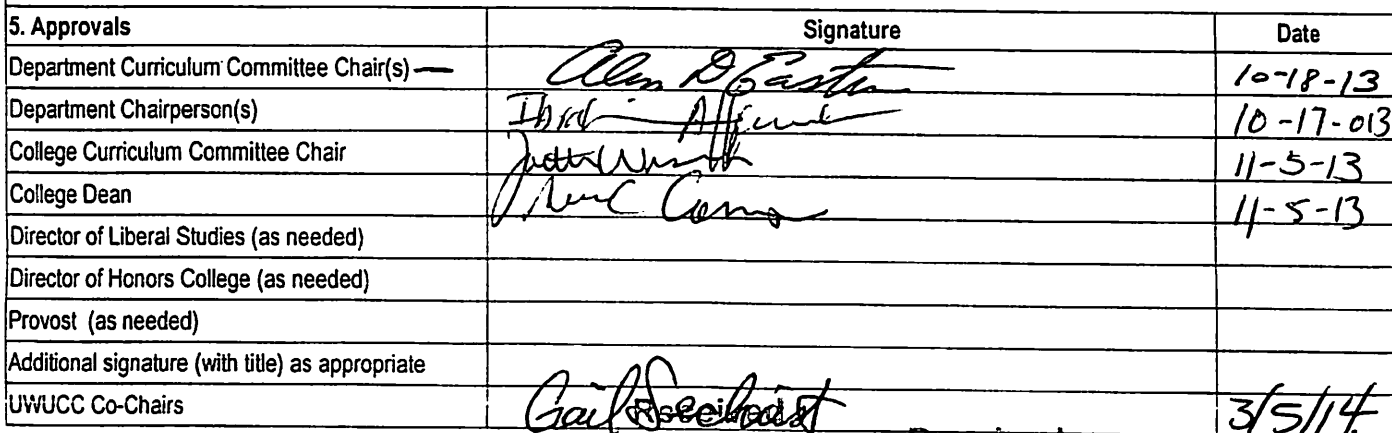 5. Approvals Signature Date
Department Curriculum Committee Chair(s) — Alan D Eastm 10-18-13
Department Chairperson(s) 10-17-013
College Curriculum Committee Chair 11-5-13
College Dean 11-5-13
Director of Liberal Studies (as needed)
Director of Honors College (as needed)
Provost (as needed)
Additional signature (with title) as appropriate
UWUCC Co-Chairs Gail Sechrist 3/5/14